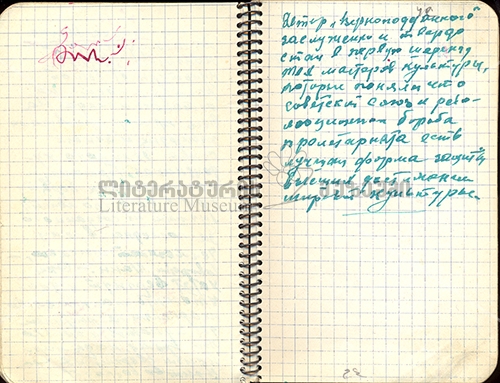 Автор „Верноподданного“
заслуженно и твердо
стал в первую шеренгу
тех мастеров культуры,
которые поняли что
советский союз и рево-
люционная борьба
пролетариата есть
лучшая форма защиты
высших достижений
мировой культуры.
ლიტერატურის მუზეუმი
Literature Museum